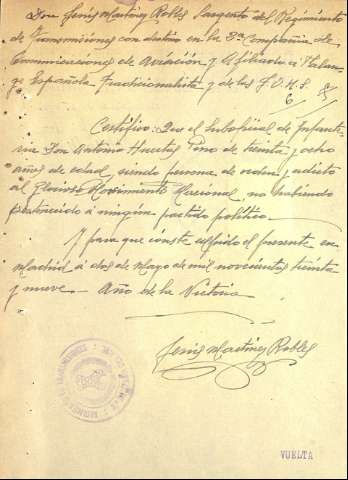 Don Jesús Martínez Robles Sargento del Regimiento
de Transmisiones con destino en la 3ª Compañía de
Comunicaciones de Aviación y Afiliado a Falan-
ge Española Tradicionalista y de las J.O.N.S.
Certifico: Que el Suboficial de Infante-
ria Don Antonio Huertas Pino de treinta y ocho
años de edad, siendo persona de orden y adicto
al Glorioso Movimiento Nacional, no habiendo
pertenecido a ningún partido político.
Y para que conste expido el presente en
Madrid a dos de Mayo de mil novecientos treinta
y nueve. Año de la Victoria
Jesús Martínez Robles
VUELTA